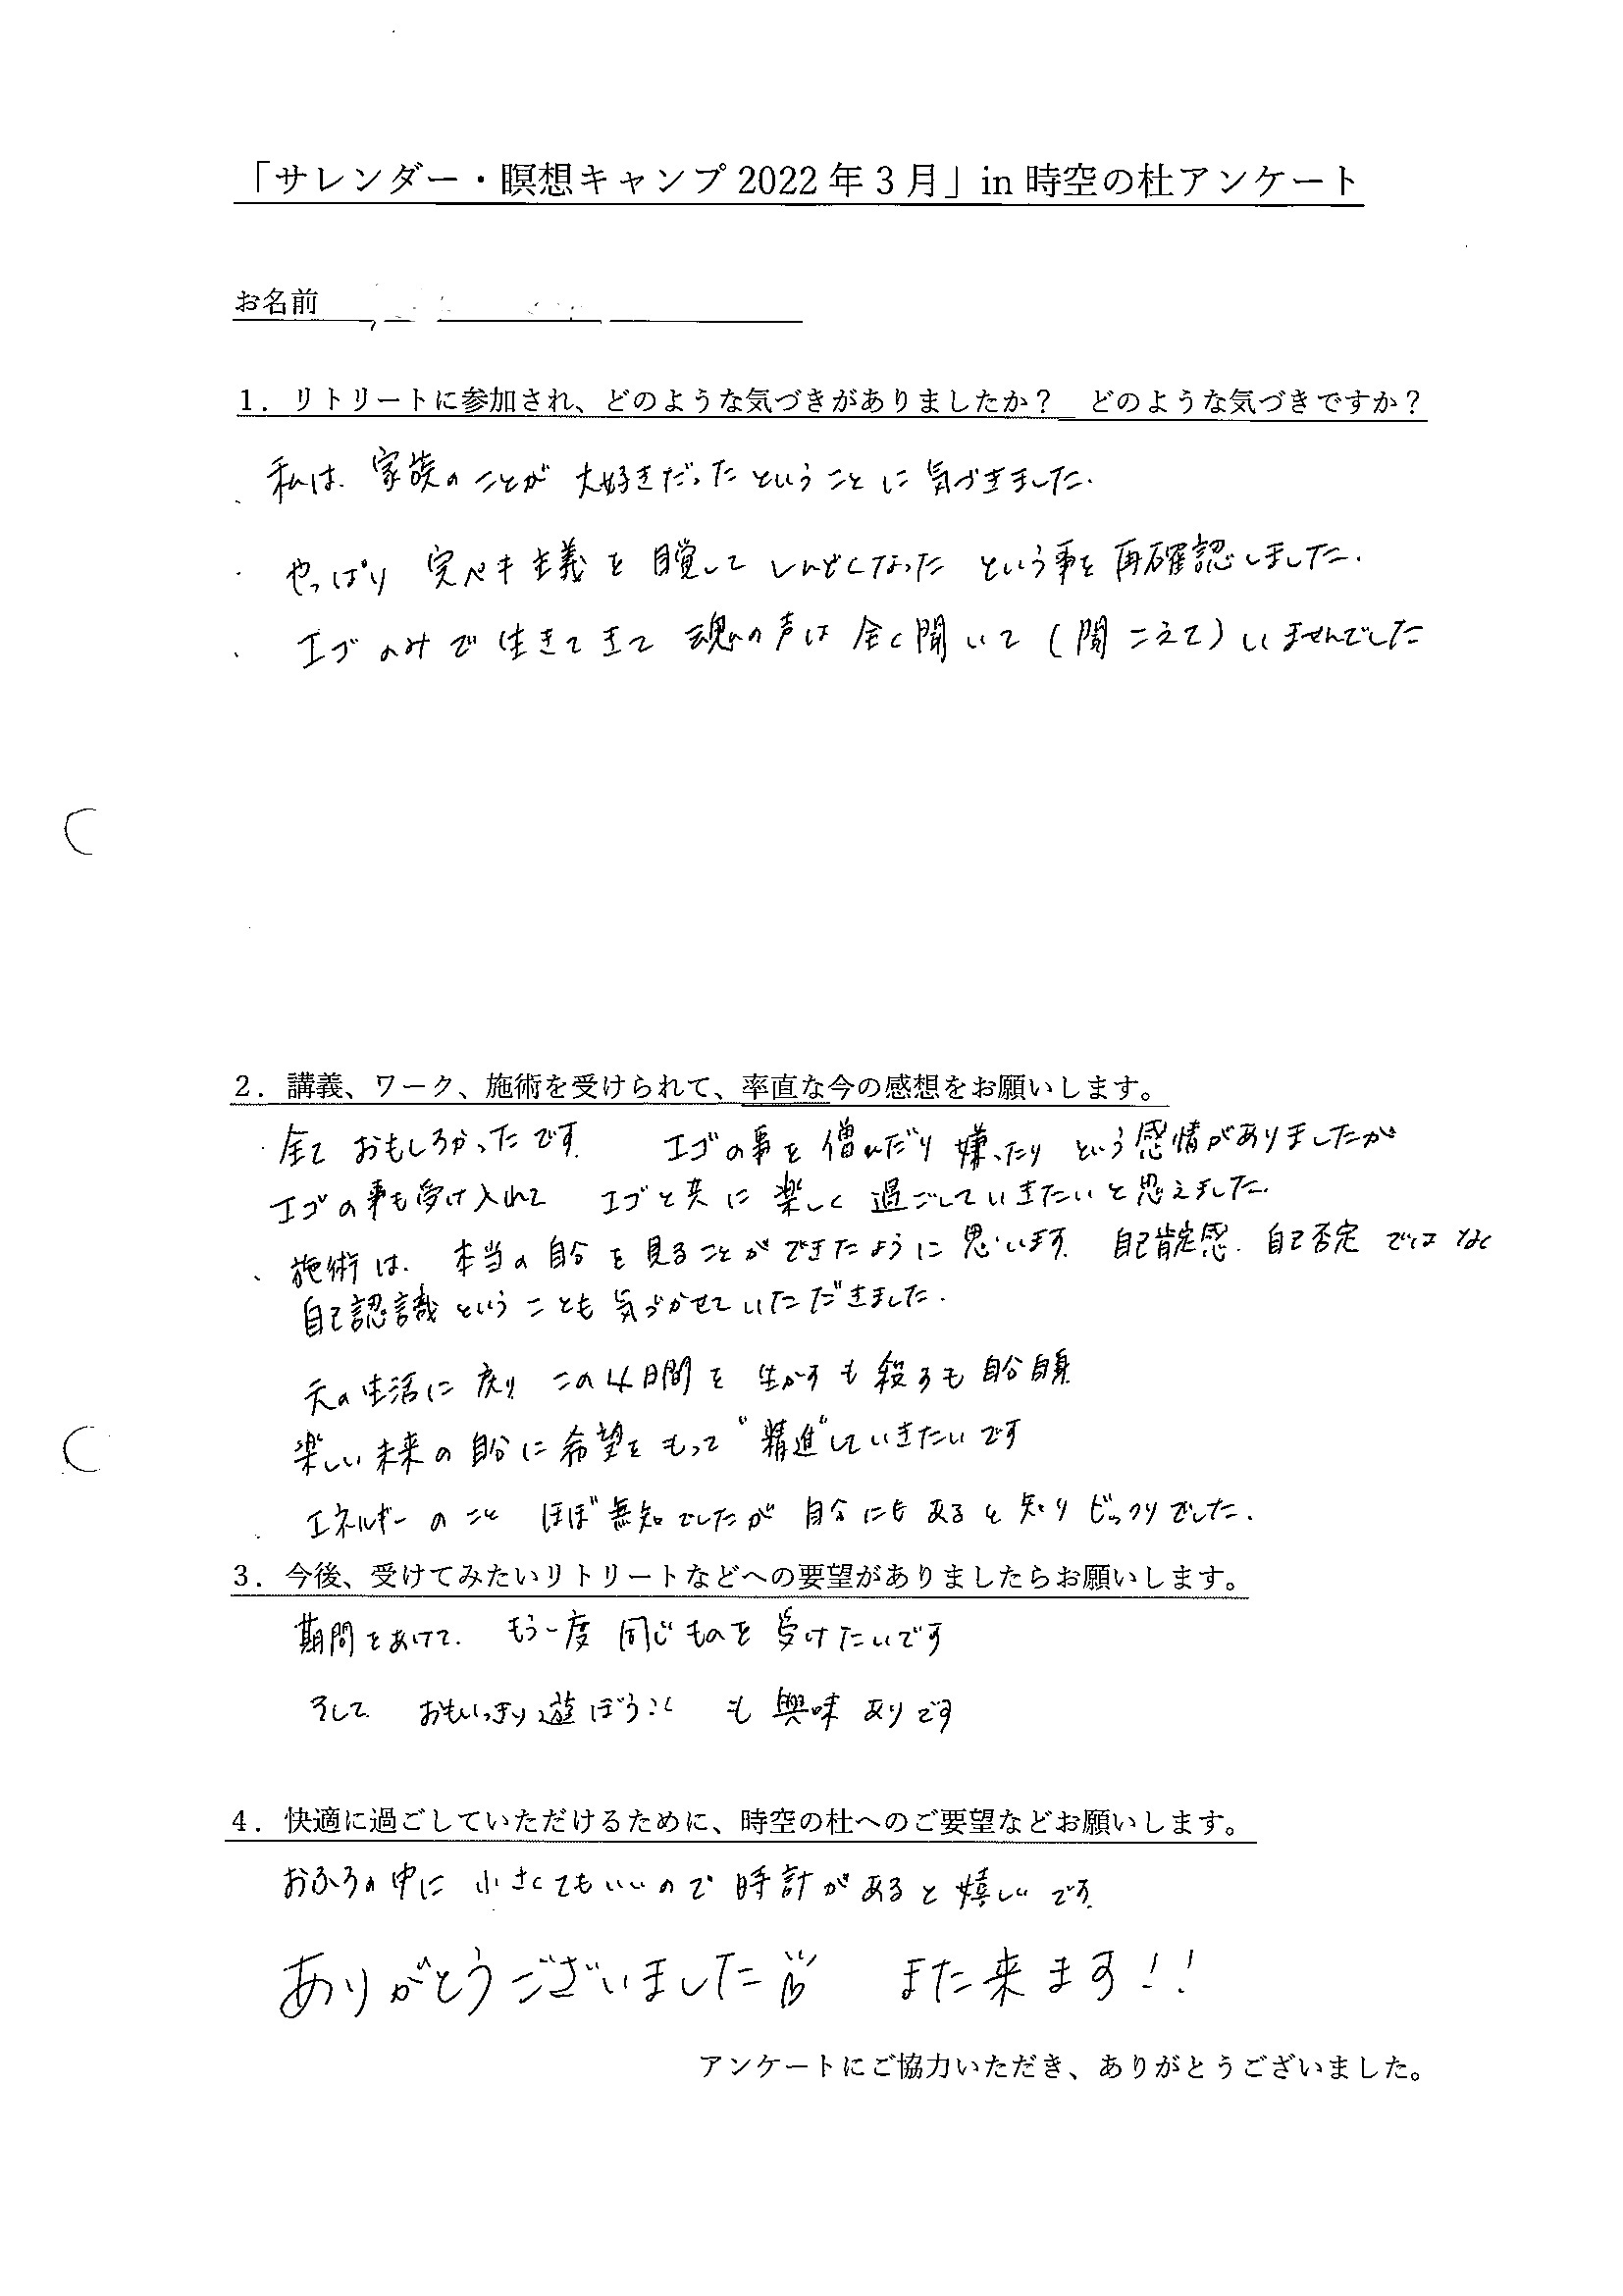 「サレンダー・瞑想キャンプ 2022 年 3 月」in 時空の杜アンケート
お名前
1. リトリートに参加され、どのような気づきがありましたか? どのような気づきですか?
・私は、家族のことが 大好きだったということに 気づきました.
・やっぱり 完ペキ主義を 自覚して しんどくなった という事を 再確認しました.
・エゴのみで 生きてきて 魂の声は 全く聞いて(聞こえて)いませんでした
2. 講義、ワーク、施術を受けられて、率直な今の感想をお願いします。
・全て おもしろかったです. エゴの事を 憎んだり 嫌ったり という 感情がありましたが
エゴの事も受け入れて エゴと共に 楽しく 過ごしていきたいと思えました.
、施術は、本当の自分を見ることができたように 思います. 自己肯定感、自己否定 ではなく
自己認識ということも 気づかせていただきました.
元の生活に 戻り この4日間を 生かすも 殺すも 自分自身
楽しい未来の自分に希望をもって"精進"していきたいです
・エネルギーのこと ほぼ無知でしたが 自分にもあると知り ビックリでした.
3. 今後、受けてみたいリトリートなどへの要望がありましたらお願いします。
期間をあけて、もう一度 同じものを 受けたいです
そして おもいっきり遊ぼうこ も 興味ありです
4. 快適に過ごしていただけるために、時空の杜へのご要望などお願いします。
おふろの中に 小さくてもいいので 時計があると嬉しいです.
ありがとうございました また来ます!!
アンケートにご協力いただき、ありがとうございました。